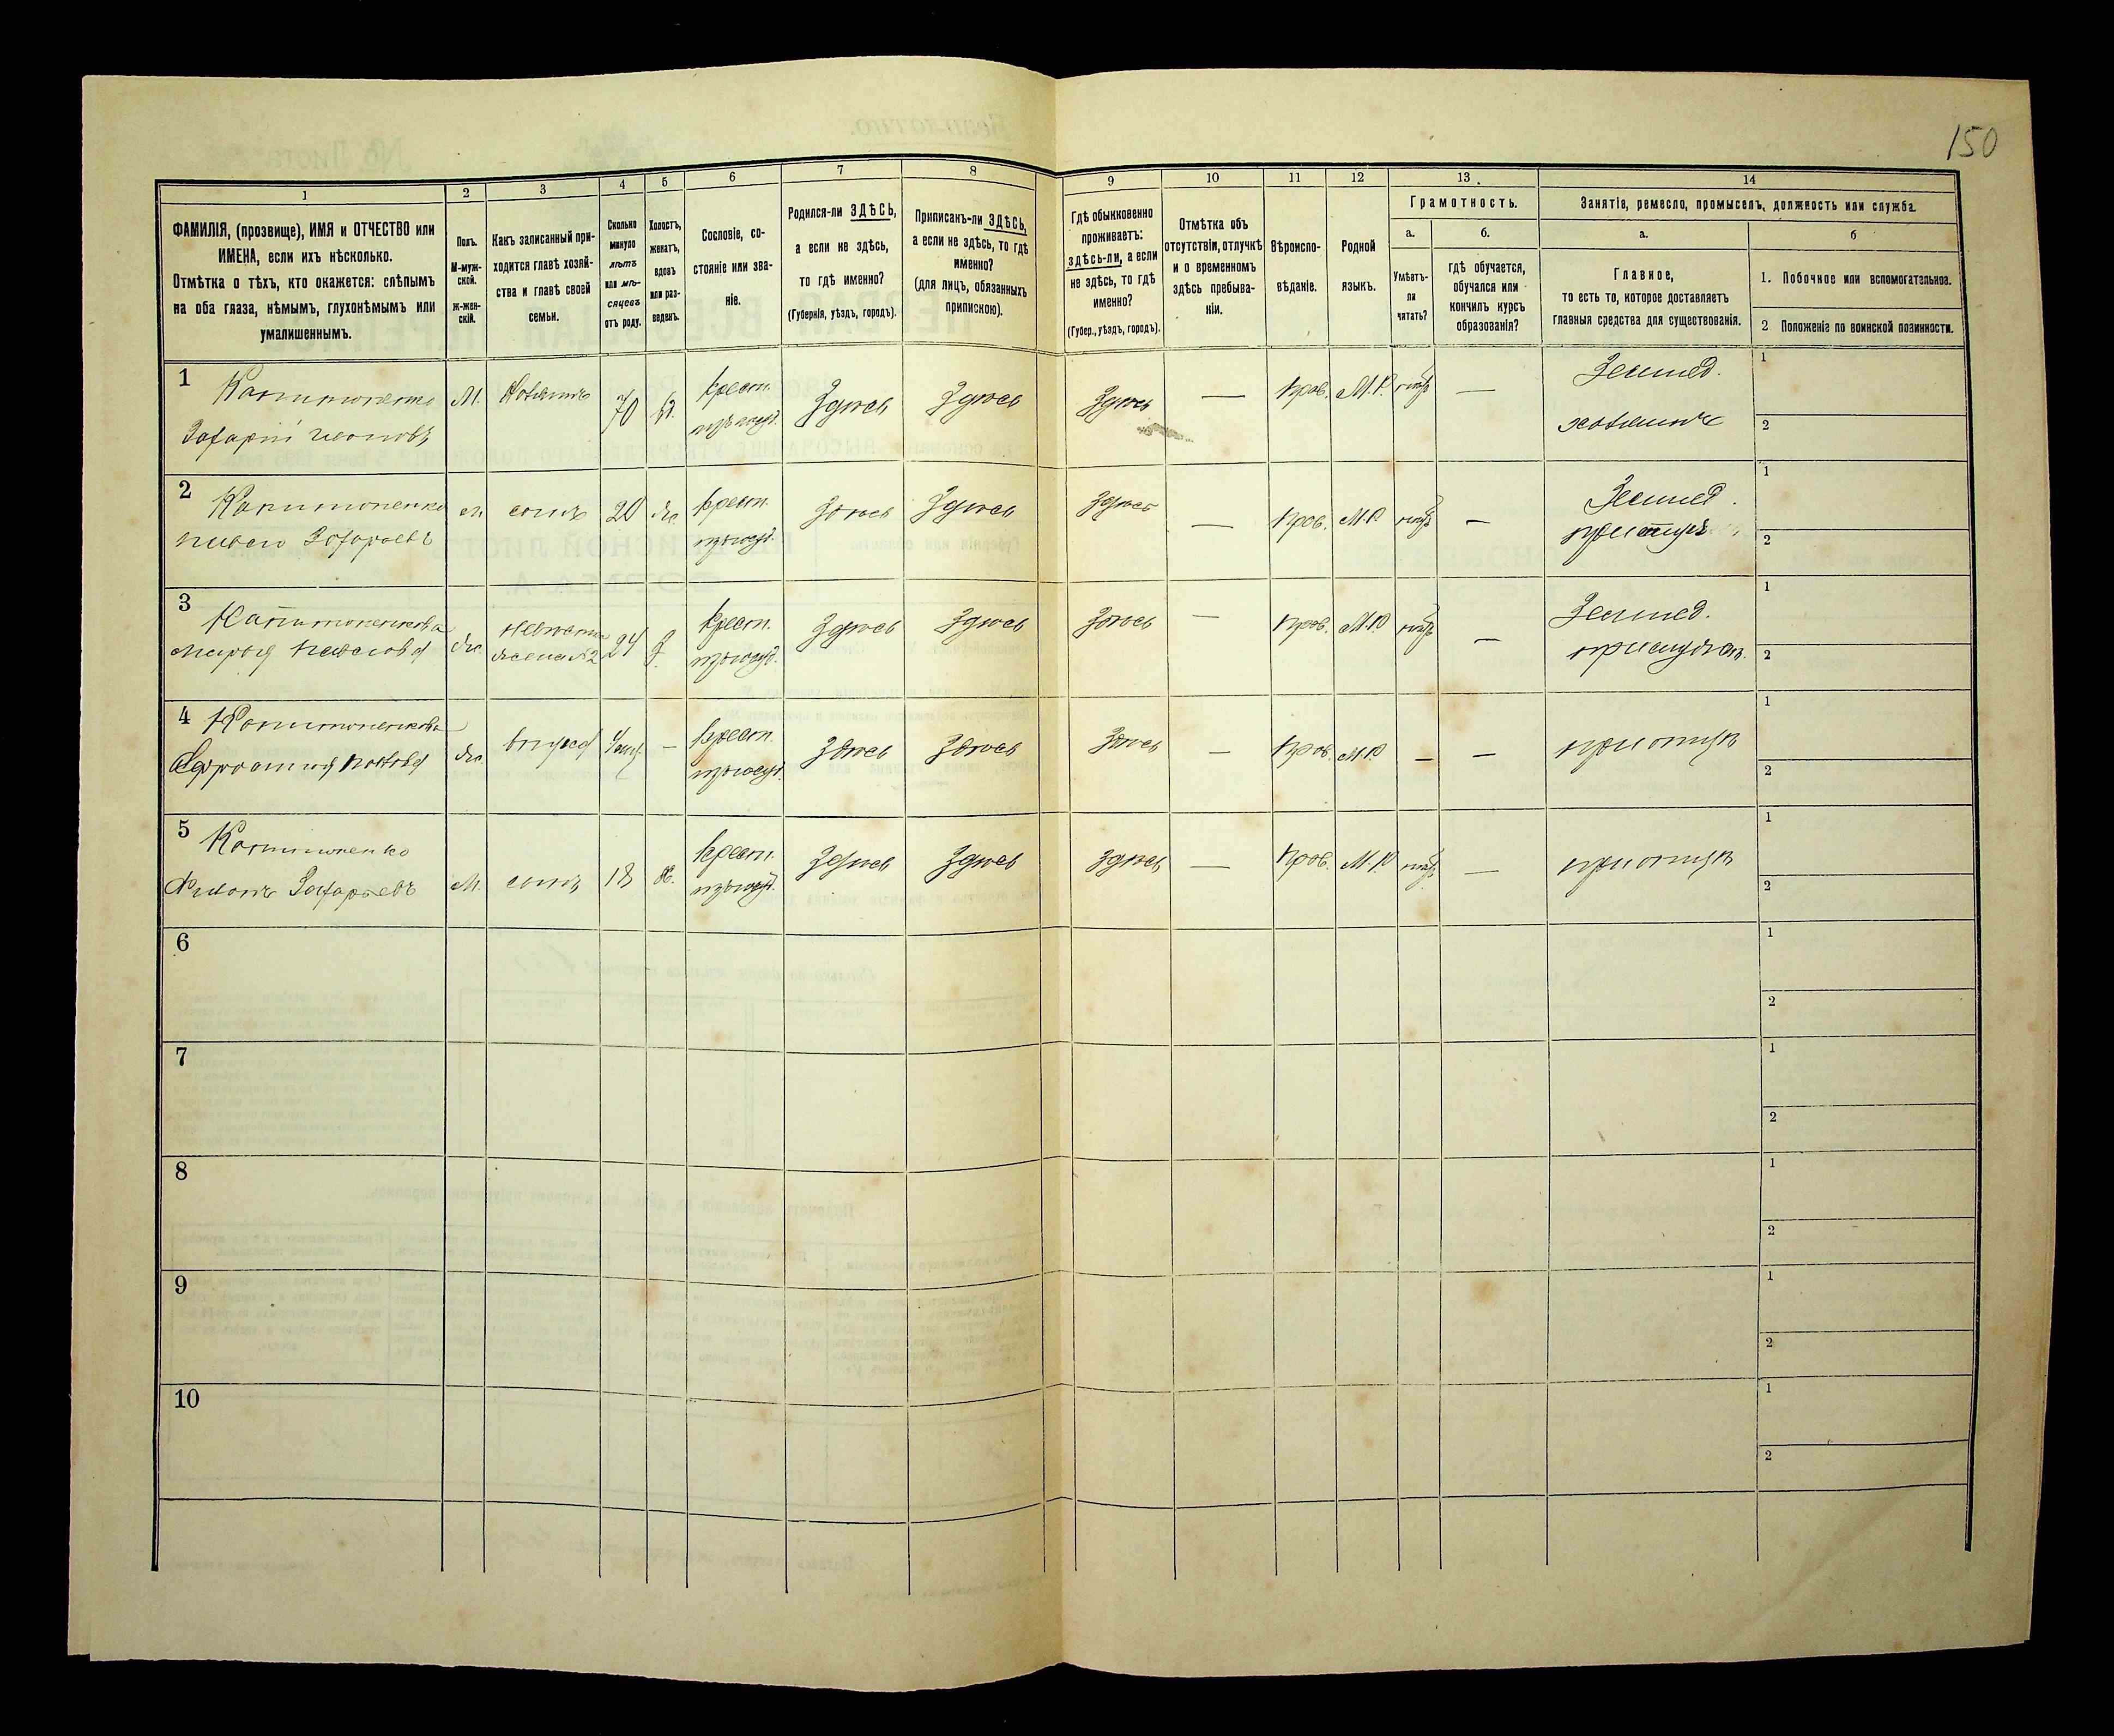 150
1
2
3
4
5
6
7
8
9
10
11
12
13.
14
ФАМИЛІЯ, (прозвище), ИМЯ и ОТЧЕСТВО или
ИМЕНА, если ихъ нѣсколько.
Отмѣтка о тѣхъ, кто окажется: слѣпымъ
на оба глаза, нѣмымъ, глухонѣмымъ или
умалишеннымъ.
Полъ.
М-муж-
ской.
ж-жен-
скій.
Какъ записанный при-
ходится главѣ хозяй-
ства и главѣ своей
семьи.
Сколько
минуло
лѣтъ
или мѣ-
сяцевъ
отъ роду.
Холостъ,
женатъ,
вдовъ
или раз-
веденъ.
Сословіе, со-
стояніе или зва-
ніе.
Родился-ли ЗДѢСЬ,
а если не здѣсь,
то гдѣ именно?
(Губернія, уѣздъ, городъ).
Приписанъ-ли ЗДѢСЬ,
а если не здѣсь, то гдѣ
именно?
(для лицъ, обязанныхъ
припискою).
Гдѣ обыкновенно
проживаетъ:
здѣсь-ли, а если
не здѣсь, то гдѣ
именно?
(Губер., уѣздъ, городъ).
Отмѣтка объ
отсутствіи, отлучкѣ
и о временномъ
здѣсь пребыва-
ніи.
Вѣроиспо-
вѣданіе.
Родной
языкъ.
Грамотность.
а.
Умѣетъ-
ли
читать?
б.
гдѣ обучается,
обучался или
кончилъ курсъ
образованія?
Занятіе, ремесло, промыселъ, должность или служба.
а.
Главное,
то есть то, которое доставляетъ
главныя средства для существованія.
б
1. Побочное или вспомогательное.
2 Положеніе по воинской повинности.
1
Капитоненко
Захарій
М.
Хозяинъ
70
В.
Крест.
Здѣсь
Здѣсь
Здѣсь
—
Прав.
М.Р.
нѣтъ
—
Землед.
хозяинъ
1
2
2
Капитоненко
Захарьевъ
м
сынъ
20
ж.
Крест.
Здѣсь
Здѣсь
Здѣсь
—
Прав.
М.Р.
нѣтъ
—
Землед.
1
2
3
Капитоненкова
Марья
ж.
невѣстка
жена №2
24
З.
Крест.
Здѣсь
Здѣсь
Здѣсь
—
Прав.
М.Р.
нѣтъ
—
Землед.
1
2
4 Капитоненкова
ж.
внука
—
Крест.
Здѣсь
Здѣсь
Здѣсь
—
Прав.
М.Р.
—
—
при отцѣ
1
2
5
Капитоненко
Захарьевъ
М.
сынъ
18
Х.
Крест.
Здѣсь
Здѣсь
Здѣсь
—
Прав.
М.Р.
нѣтъ
—
при отцѣ
1
2
6
1
2
7
1
2
8
1
2
9
1
2
10
1
2